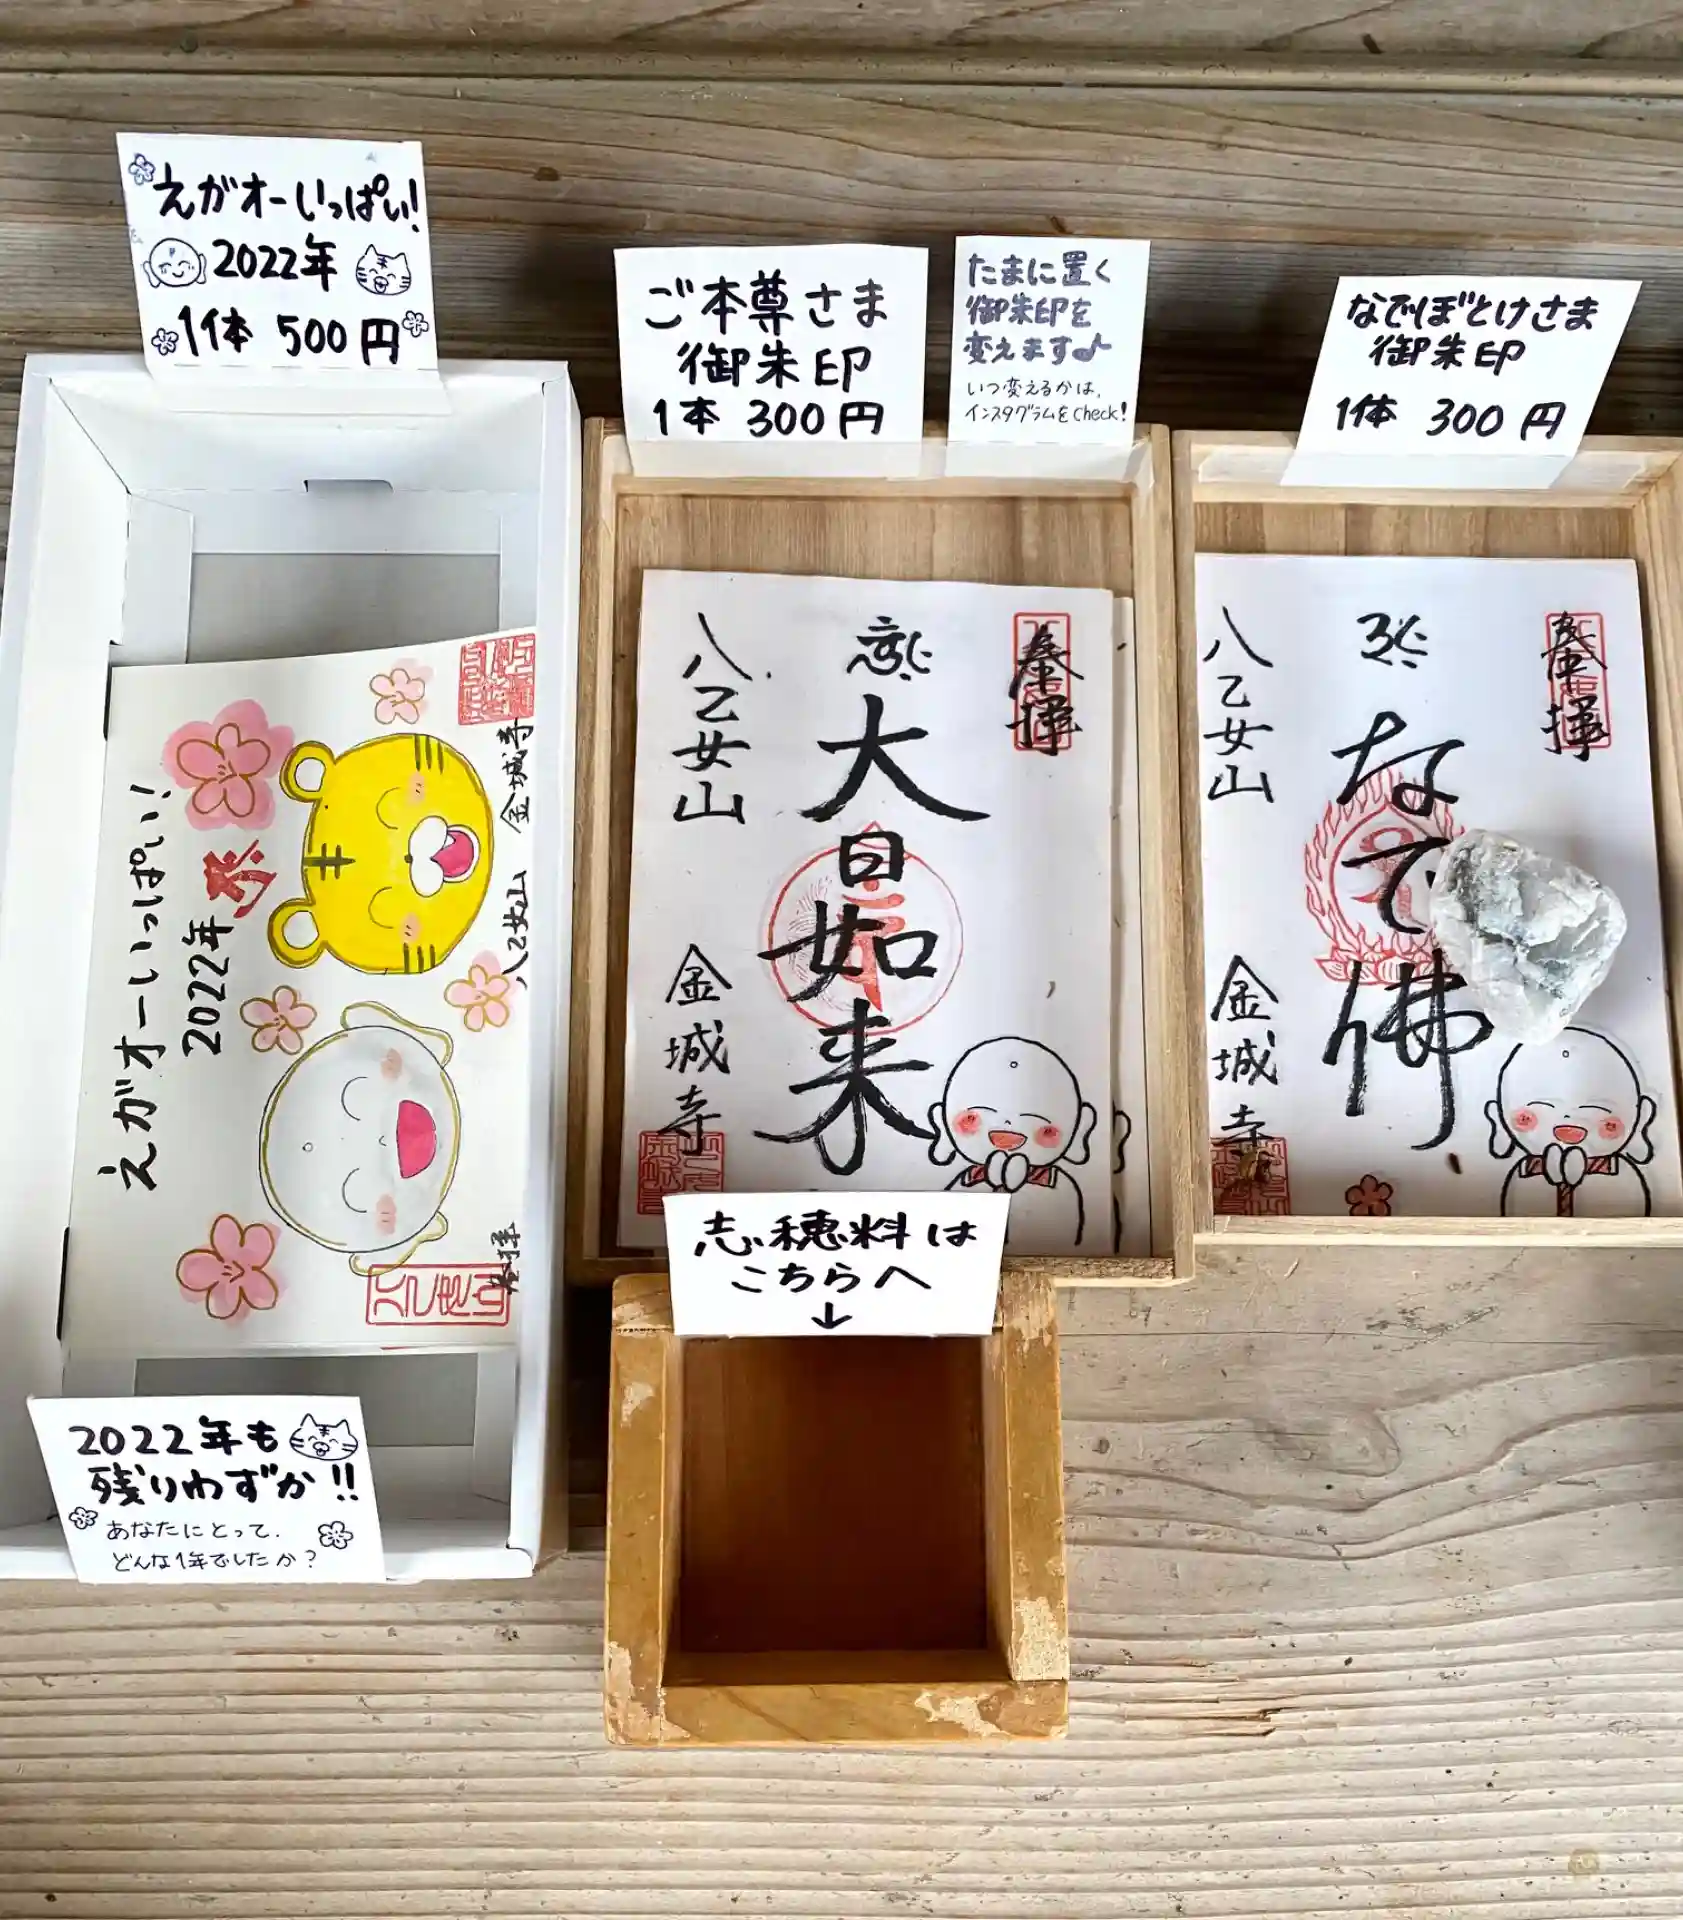 えがオーいっぱい!
2022年
1体 500円
ご本尊さま
御朱印
1本 300円
たまに置く
御朱印を
変えます♪
いつ変えるかは、
インスタグラムをCheck!
なでぼとけさま
御朱印
1体 300円
えがオーいっぱい!
2022年
八乙女山 金城寺
奉拝
奉拝
大日如来
八乙女山
金城寺
奉拝
なで佛
八乙女山
金城寺
志穂料は
こちらへ
↓
2022年も
残りわずか!!
あなたにとって、
どんな1年でしたか?